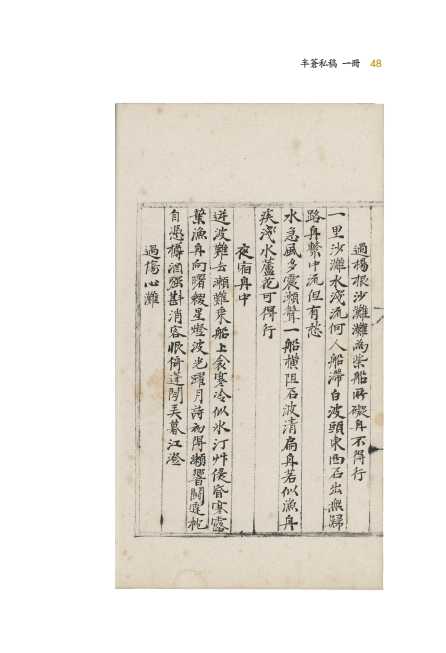 半蒼私稿 一冊 48
過楊根沙灘灘爲柴船所礙舟不得行
一里沙灘水淺流何人船滯白波頭東西石出無歸
路舟繫中流但有愁
水急風多震瀨聲一船橫阻石波淸扁舟若似漁舟
疾淺水蘆花可得行
夜宿舟中
逆波難去瀨難乘船上衾寒冷似氷汀艸侵昏寒露
葉漁舟向曙鞍星燈波光躍月詩初得瀨響閙窓枕
自憑樽酒旣斟消客恨倚篷閒弄暮江澄
過傷心灘